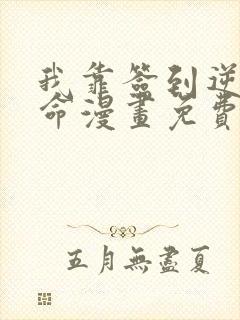 我靠簽到逆
命漫畫免費
五月無盡夏